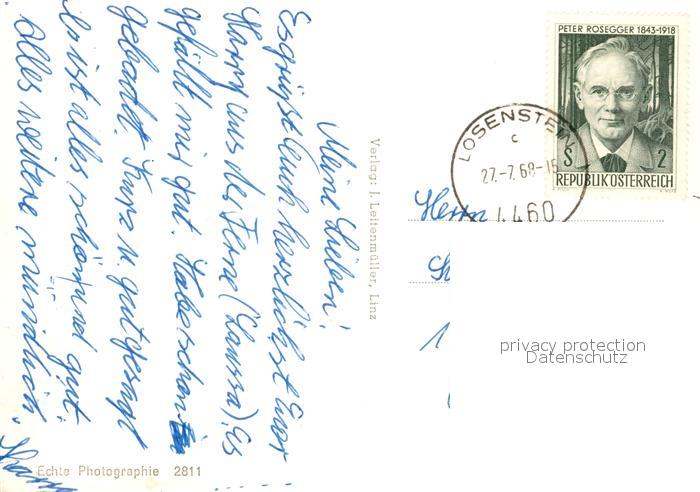 PETER ROSEGGER 1843-1918
S 2
REPUBLIK ÖSTERREICH
LOSENSTEIN
c
27.-7.68-15
4460
Herrn
Meine Lieben!
Es grüsst Euch herzlichst Euer
Harry aus der Ferne (Laussa) Es
gefällt mir gut. Habe schon
gebadet. Kurz u. gut gesagt
es ist alles schön und gut.
Alles weitere mündlich.
Verlag: J. Leitenmüller, Linz
Echte Photographie 2811
privacy protection
Datenschutz